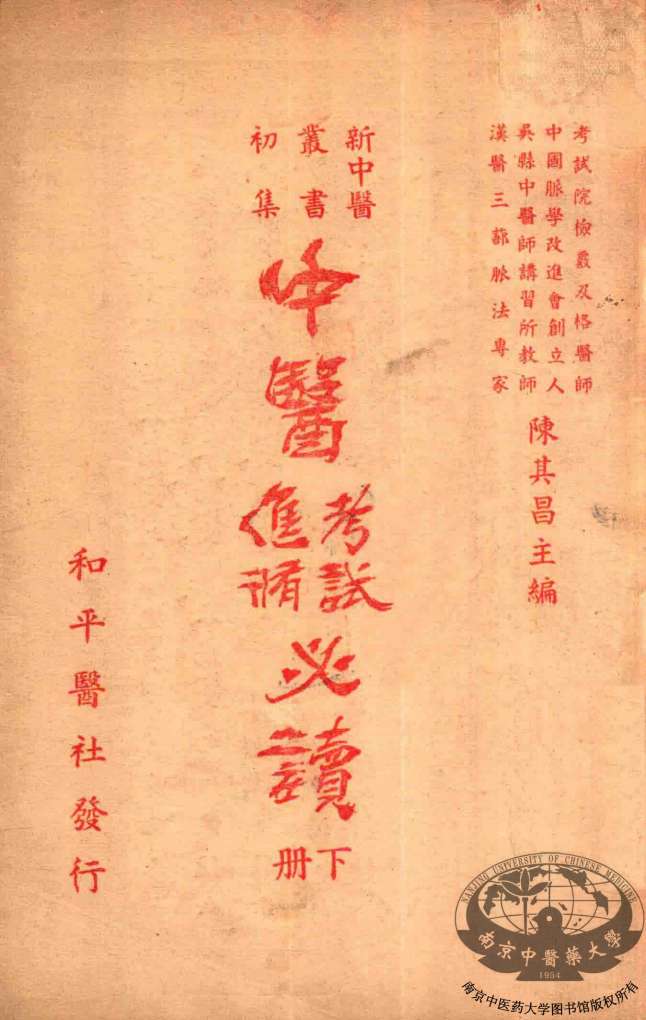 考試院檢覈及格醫師
中國脈學改進會創立人
吳縣中醫師講習所教師
漢醫三部脈法專家
陳其昌主編
新中醫
叢書
初集
中醫
考試
進脩
必讀
下
册
和平醫社發行
NANJING UNIVERSITY OF CHINESE MEDICINE
南京中醫藥大學
1954
南京中医药大学图书馆版权所有